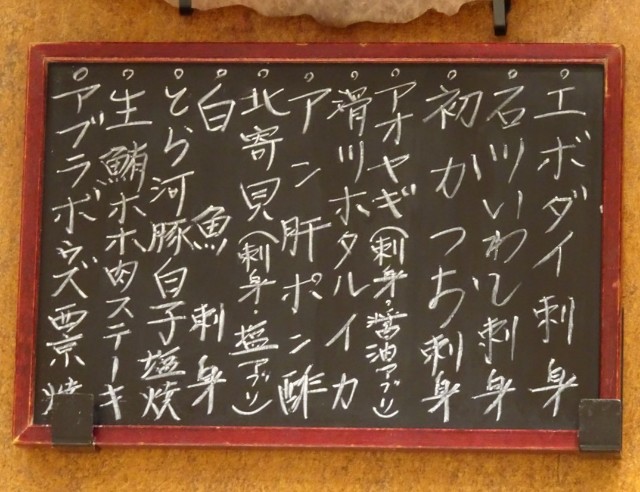 。エボダイ刺身
。石ツいわし刺身
。初かつお刺身
。アオヤギ(刺身・醤油アブリ)
。滑川ホタルイカ
。アン肝ポン酢
。北寄貝(刺身・塩アブリ)
。白魚刺身
。とら河豚白子塩焼
。生鮪ホホ肉ステーキ
。アブラボウズ西京焼